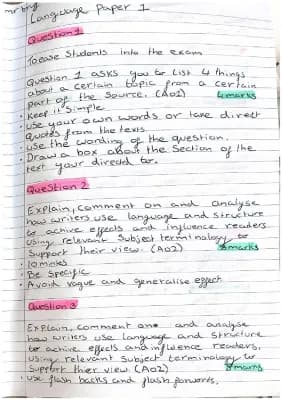 Language Paper 1
Question 1
To ease students into the exam
Question 1 asks you to list 4 things
about a certain topic from a certain
part of the source. (AO1) 4 marks
• Keep it simple
• use your own words or take direct
quotes from the texts
• use the wording of the question.
• Draw a box about the section of the
text your direced to.
Question 2
Explain, comment on and analyse
how writers use language and structure
to achive effects and influence readers
using relevant subject terminology to
support their view. (AO2) 8 marks
• 10 mins
• Be specific
• Avoid vague and generalise effect
Question 3
Explain, comment one and analyse
how writers use language and structure
to achive effects and influence readers.
using relevant subject terminology to
support thier view. (AO2) 8 marks
• use flash backs and flash forwards.